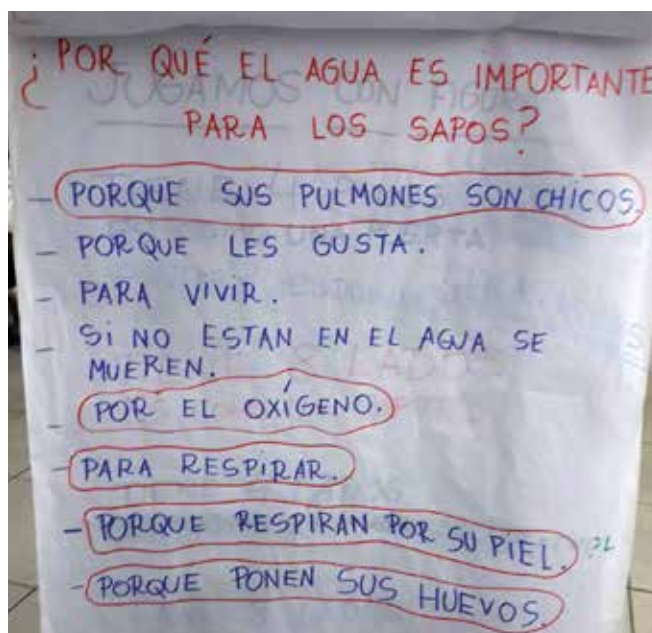 ¿POR QUÉ EL AGUA ES IMPORTANTE
PARA LOS SAPOS?
- PORQUE SUS PULMONES SON CHICOS.
- PORQUE LES GUSTA.
- PARA VIVIR.
- SI NO ESTAN EN EL AGUA SE
MUEREN.
- POR EL OXÍGENO.
- PARA RESPIRAR.
- PORQUE RESPIRAN POR SU PIEL.
- PORQUE PONEN SUS HUEVOS.